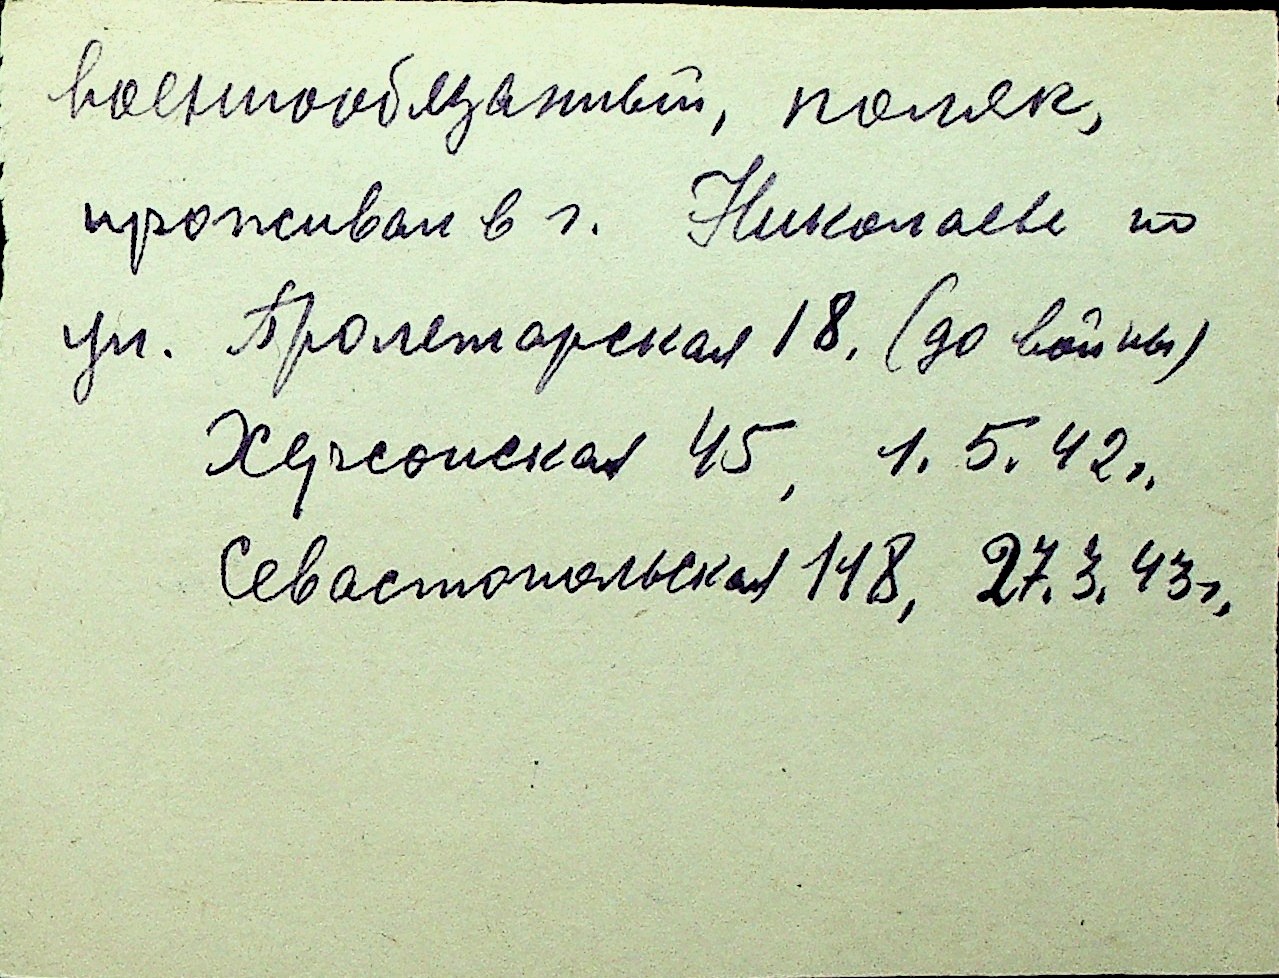 военнообязанный, поляк,
проживал в г. Николаеве по
ул. Пролетарская 18. (до войны)
Херсонская 45, 1.5.42г.
Севастопольская 148, 27.3.43г.